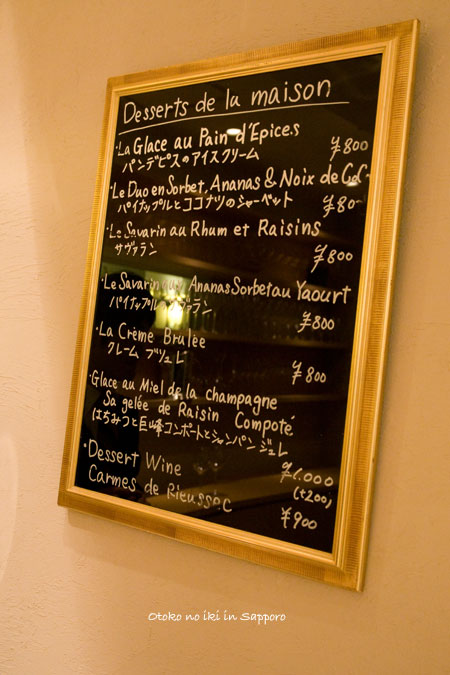 Desserts de la maison
・La Glace au Pain d'Epices
パンデピスのアイスクリーム ¥800
・Le Duo en Sorbet, Ananas & Noix de CoCo
パイナップルとココナツのシャーベット ¥80
・Le Savarin au Rhum et Raisins
サヴァラン ¥800
・Le Savarin Ananas Sorbet au Yaourt
パイナップルの ヴァラン ¥800
・La Crème Brulée
クレーム ブリュレ ¥800
・Glace au Miel de la champagne
Sa gelée de Raisin Compoté
はちみつと巨峰コンポートとシャンパン ジュレ
¥1.000
(+200)
・Dessert Wine
Carmes de Rieussec ¥900
Otoko no iki in Sapporo